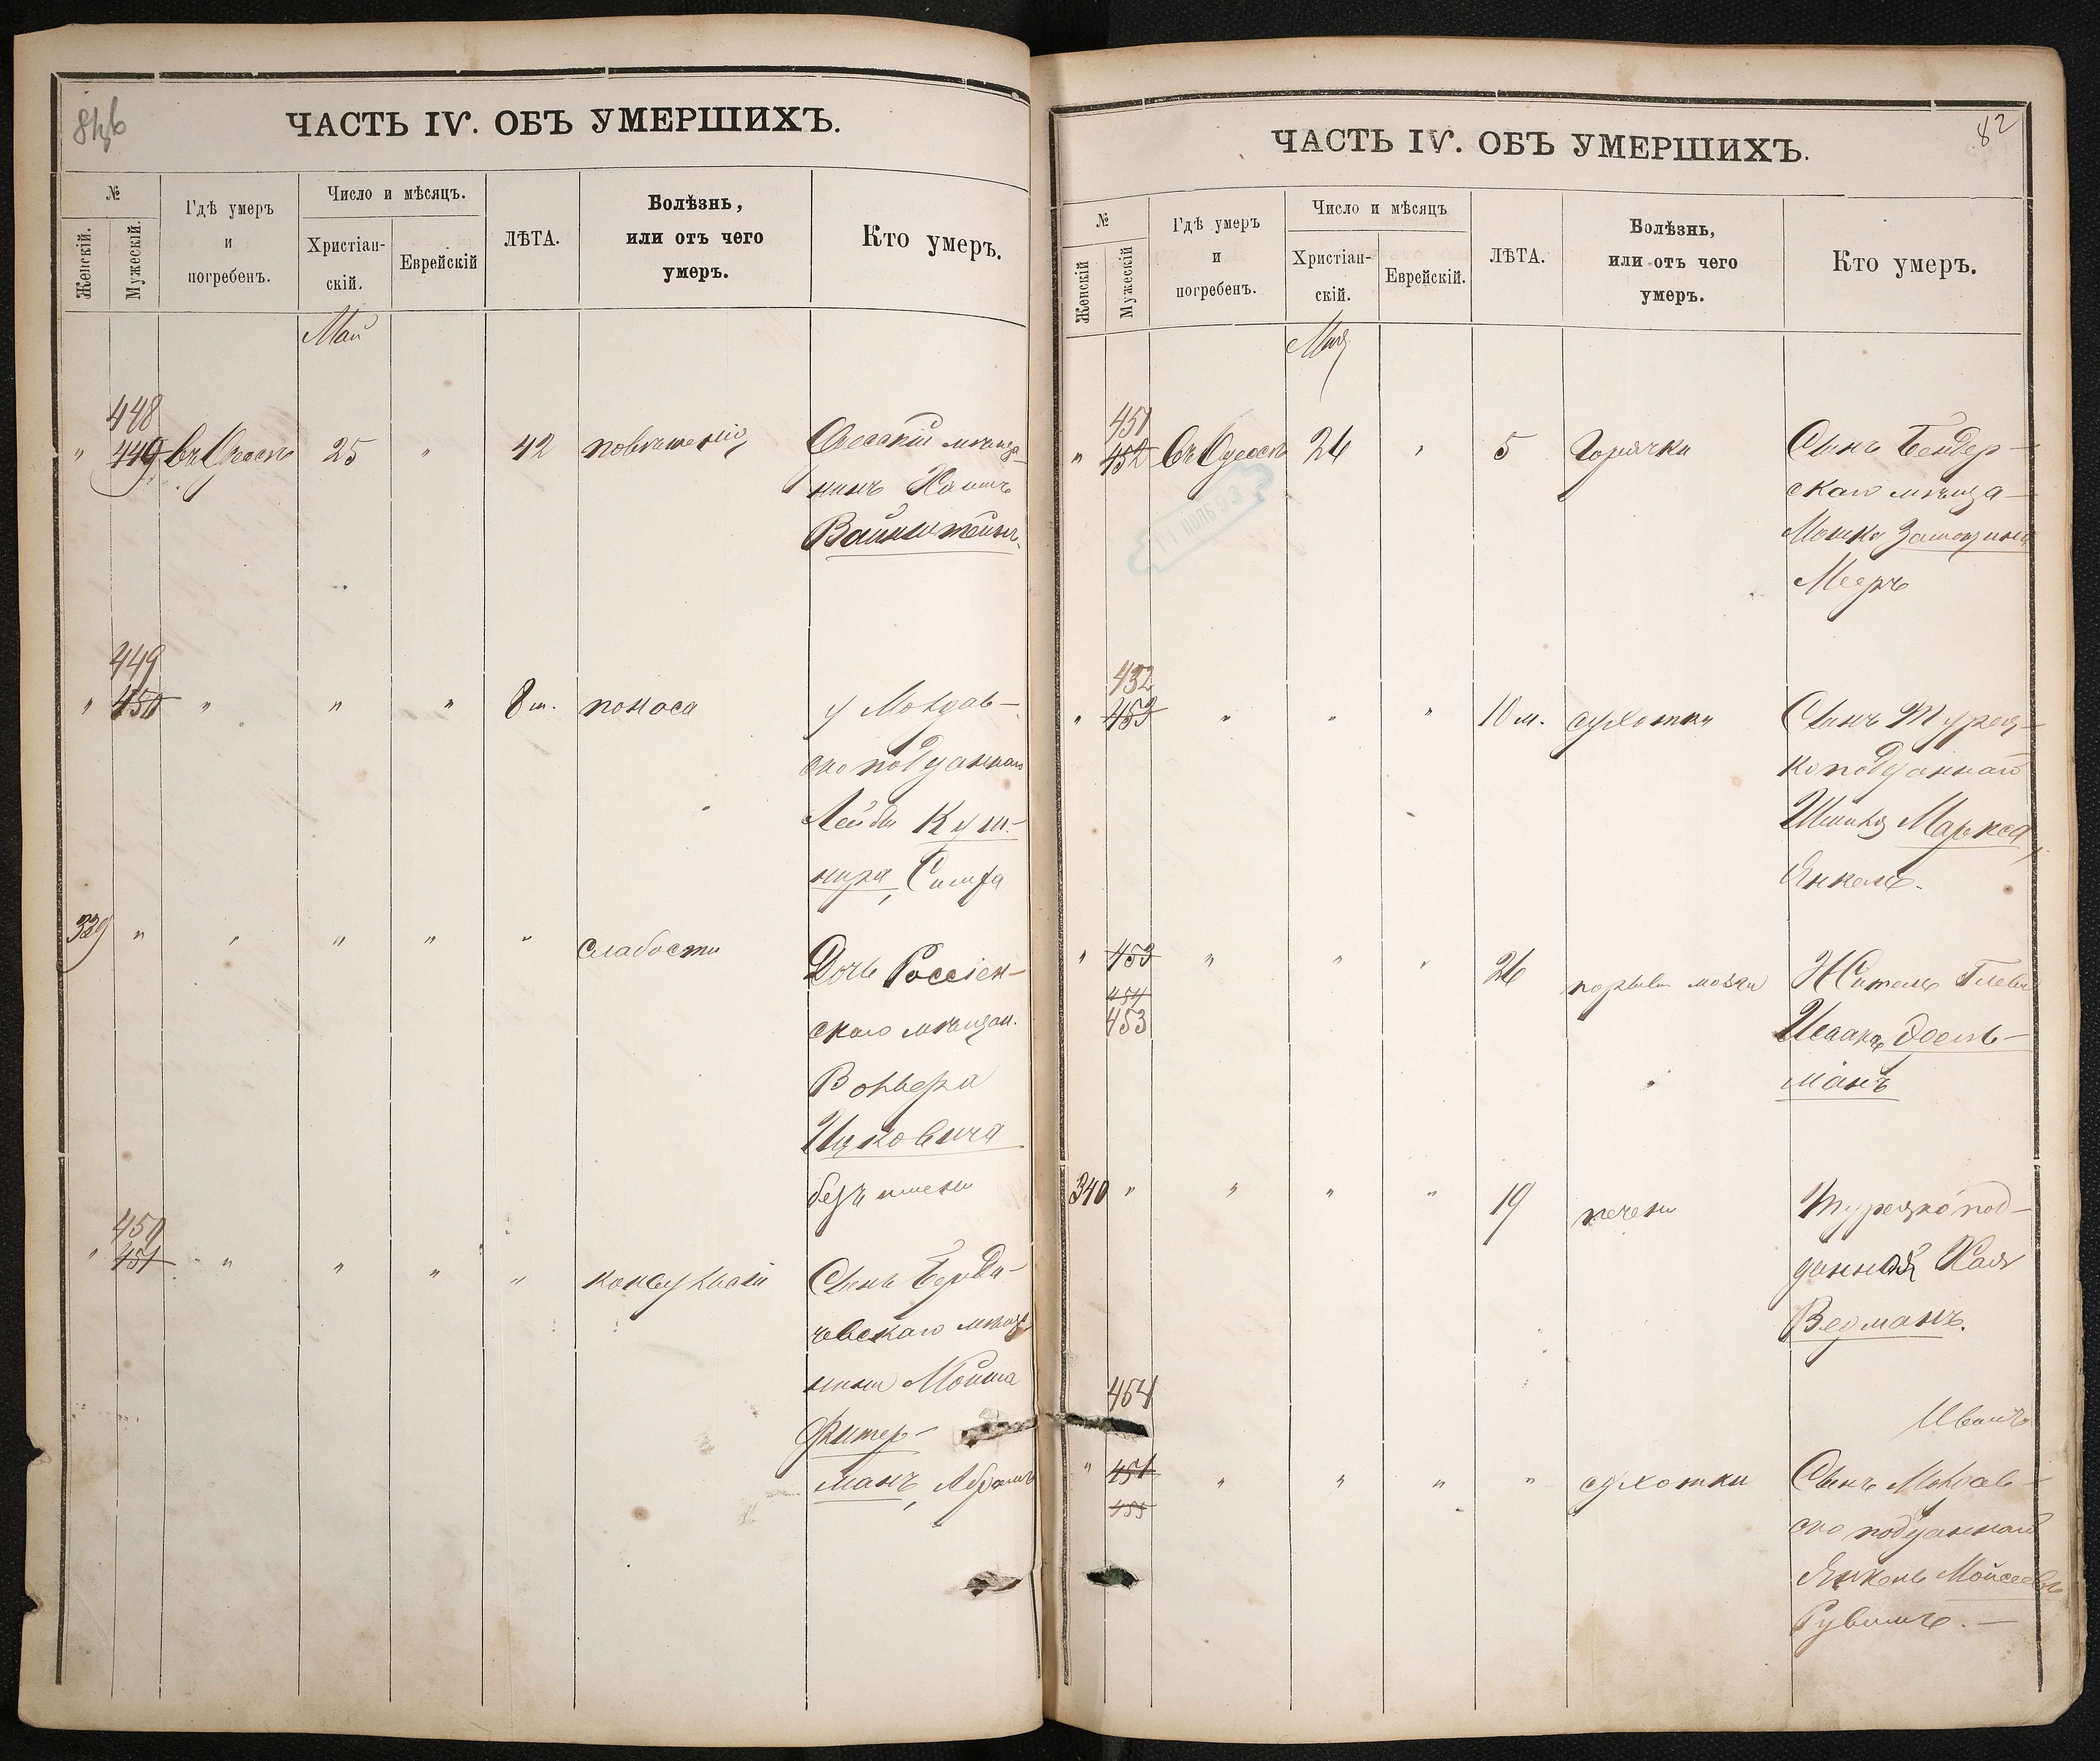 ЧАСТЬ IV. ОБЪ УМЕРШИХЪ.
№
Женскій.
Мужескій.
Гдѣ умеръ
и
погребенъ.
Число и мѣсяцъ.
Христіан-
скій.
Еврейскій
ЛѢТА.
Болѣзнь,
или отъ чего
умеръ.
Кто умеръ.
Май
448
" 449 въ Одессѣ 25 " 42 Одесскій мѣща-
нинъ Хаимъ
Вайнштейнъ
449
" 450 " " " 8 м. поноса у Молдав-
ско подданнаго
Лейбы Куш-
нира, Симха
339 " " " " " слабости Дочь Россіен-
скаго мѣщан.
Вольфа
Ицковича
безъ имени
450
" 451 " " " " конвульсій Сынъ Берди-
чевскаго мѣща
нина Мойша
Фитер-
манъ, Абрамъ
82
ЧАСТЬ IV. ОБЪ УМЕРШИХЪ.
№
Женскій
Мужескій
Гдѣ умеръ
и
погребенъ.
Число и мѣсяцъ
Христіан-
скій.
Еврейскій.
ЛѢТА.
Болѣзнь,
или отъ чего
умеръ.
Кто умеръ.
Май
451
" 452 Въ Одессѣ 26 " 5 Горячки Сынъ Бендер-
скаго мѣща-
Мошко
Мееръ
11 НОЯБ 93
452
" 453 " " " 10 м. сухотки Сынъ Турец-
ко подданнаго
Маркса,
Янкель.
" 453 " " " 26 мозга Житель
454
453
Исаакъ Эдель-
манъ
340 " " " " 19 печени Турецко под-
данная Хая
Ведманъ.
454
Иванъ
" 451 " " " " сухотки Сынъ Молдав-
455
ско подданнаго
Янкель Мойсеевъ
Рувимъ. —